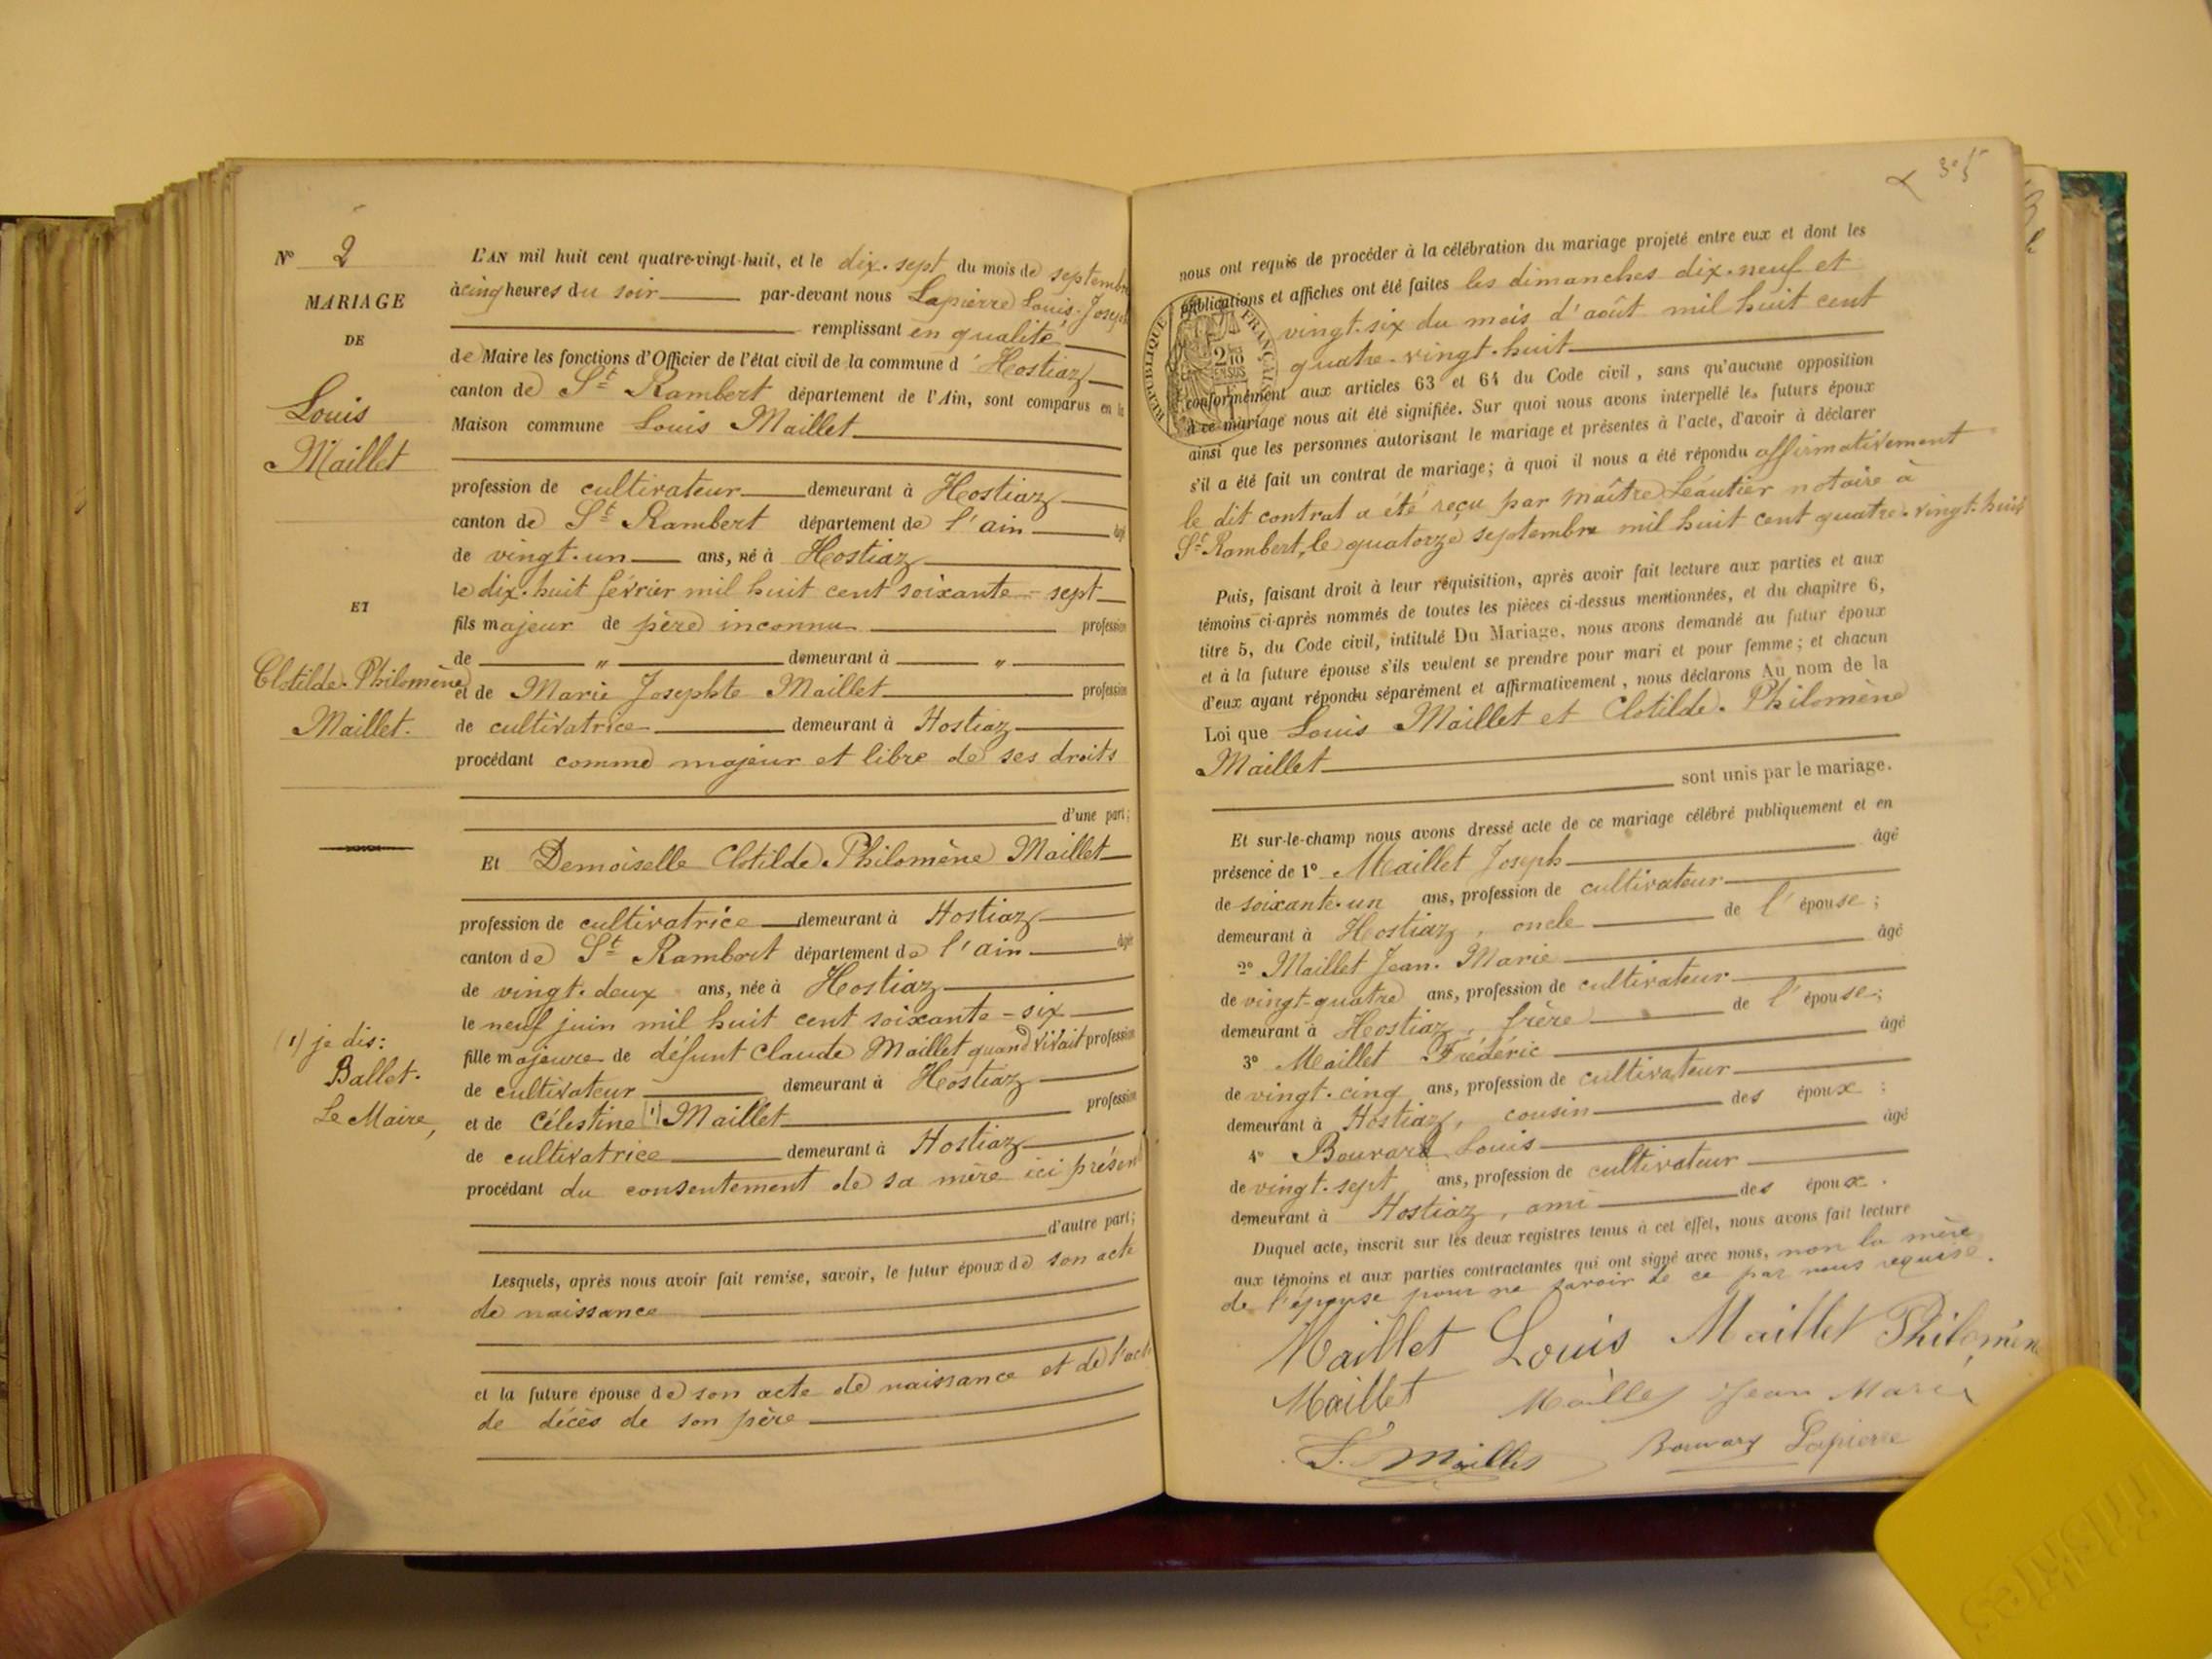 N° 2
MARIAGE
DE
Louis
Maillet
ET
Clotilde-Philomène
Maillet.
(1) je dis:
Ballet.
Le Maire,
L'AN mil huit cent quatre-vingt-huit, et le dix-sept du mois de septembre
à cinq heures du soir par-devant nous Lapierre Louis-Joseph
remplissant en qualité
de Maire les fonctions d'Officier de l'état civil de la commune d'Hostiaz
canton de St Rambert département de l'Ain, sont comparus en la
Maison commune Louis Maillet
profession de cultivateur demeurant à Hostiaz
canton de St Rambert département de l'ain âgé
de vingt-un ans, né à Hostiaz
le dix-huit février mil huit cent soixante-sept
fils majeur de père inconnu profession
de " demeurant à "
et de Marie Josephte Maillet profession
de cultivatrice demeurant à Hostiaz
procédant comme majeur et libre de ses droits
d'une part;
Et Demoiselle Clotilde-Philomène Maillet
profession de cultivatrice demeurant à Hostiaz
canton de St Rambert département de l'ain âgée
de vingt-deux ans, née à Hostiaz
le neuf juin mil huit cent soixante-six
fille majeure de défunt Claude Maillet quand vivait profession
de cultivateur demeurant à Hostiaz
et de Célestine (1) Maillet profession
de cultivatrice demeurant à Hostiaz
procédant du consentement de sa mère ici présen
d'autre part;
Lesquels, après nous avoir fait remise, savoir, le futur époux de son acte
de naissance
et la future épouse de son acte de naissance et de l'acte
de décès de son père
305
nous ont requis de procéder à la célébration du mariage projeté entre eux et dont les
publications et affiches ont été faites les dimanches dix-neuf et
vingt-six du mois d'août mil huit cent
quatre-vingt-huit
RÉPUBLIQUE FRANÇAISE
2/10 EN SUS
conformément aux articles 63 et 64 du Code civil, sans qu'aucune opposition
à ce mariage nous ait été signifiée. Sur quoi nous avons interpellé les futurs époux
ainsi que les personnes autorisant le mariage et présentes à l'acte, d'avoir à déclarer
s'il a été fait un contrat de mariage; à quoi il nous a été répondu affirmativement
le dit contrat a été reçu par maître Léautier notaire à
St Rambert, le quatorze septembre mil huit cent quatre-vingt-huit
Puis, faisant droit à leur réquisition, après avoir fait lecture aux parties et aux
témoins ci-après nommés de toutes les pièces ci-dessus mentionnées, et du chapitre 6,
titre 5, du Code civil, intitulé Du Mariage, nous avons demandé au futur époux
et à la future épouse s'ils veulent se prendre pour mari et pour femme; et chacun
d'eux ayant répondu séparément et affirmativement, nous déclarons Au nom de la
Loi que Louis Maillet et Clotilde-Philomène
Maillet
sont unis par le mariage.
Et sur-le-champ nous avons dressé acte de ce mariage célébré publiquement et en
présence de 1° Maillet Joseph âgé
de soixante-un ans, profession de cultivateur
demeurant à Hostiaz, oncle de l'épouse;
2° Maillet Jean-Marie âgé
de vingt-quatre ans, profession de cultivateur
demeurant à Hostiaz, frère de l'épouse;
3° Maillet Frédéric âgé
de vingt-cinq ans, profession de cultivateur
demeurant à Hostiaz, cousin des époux;
4° Bouvard Louis âgé
de vingt-sept ans, profession de cultivateur
demeurant à Hostiaz, ami des époux.
Duquel acte, inscrit sur les deux registres tenus à cet effet, nous avons fait lecture
aux témoins et aux parties contractantes qui ont signé avec nous, non la mère
de l'épouse pour ne savoir de ce par nous requise.
Maillet Louis Maillet Philomèn
Maillet Maillet Jean Marie
F. Maillet Bouvard Lapierre